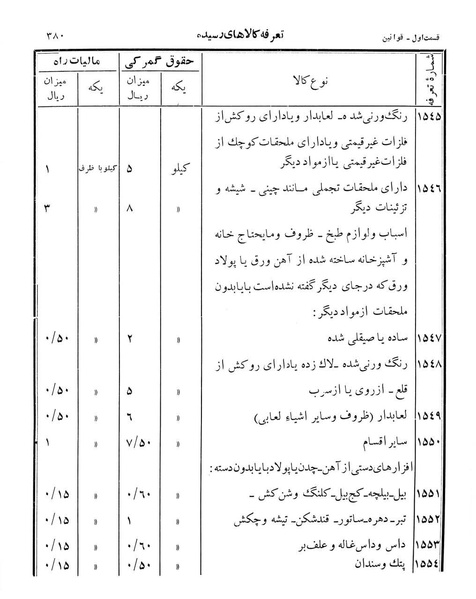 قسمت اول ـ قوانین تعرفه کالاهای رسیده ۳۸۰
شمارهٔ تعرفه نوع کالا حقوق گمرکی مالیات راه
یکه میزان ریال یکه میزان ریال
۱۵۴۵ رنگ ورنی شده ـ لعابدار و یا دارای روکش از
فلزات غیر قیمتی و یا دارای ملحقات کوچک از
فلزات غیر قیمتی یا از مواد دیگر کیلو ۵ کیلو با ظرف ۱
۱۵۴۶ دارای ملحقات تجملی مانند چینی ـ شیشه و
تزئینات دیگر » ۸ » ۳
اسباب و لوازم طبخ ـ ظروف و مایحتاج خانه
و آشپزخانه ساخته شده از آهن ورق یا پولاد
ورق که در جای دیگر گفته نشده است با یا بدون
ملحقات از مواد دیگر :
۱۵۴۷ ساده یا صیقلی شده » ۲ » ۰/۵۰
۱۵۴۸ رنگ ورنی شده ـ لاک زده یا دارای روکش از
قلع ـ از روی یا از سرب » ۵ » ۰/۵۰
۱۵۴۹ لعابدار (ظروف و سایر اشیاء لعابی) » ۶ » ۰/۵۰
۱۵۵۰ سایر اقسام » ۷/۵۰ » ۱
افزارهای دستی از آهن ـ چدن یا پولاد با یا بدون دسته :
۱۵۵۱ بیل ـ بیلچه ـ کج بیل ـ کلنگ و شن کش ـ » ۰/۶۰ » ۰/۱۵
۱۵۵۲ تبر ـ دهره ـ ساتور ـ قندشکن ـ تیشه و چکش » ۱ » ۰/۱۵
۱۵۵۳ داس و داس غاله و علف بر » ۰/۶۰ » ۰/۱۵
۱۵۵۴ پتک و سندان » ۰/۵۰ » ۰/۱۵